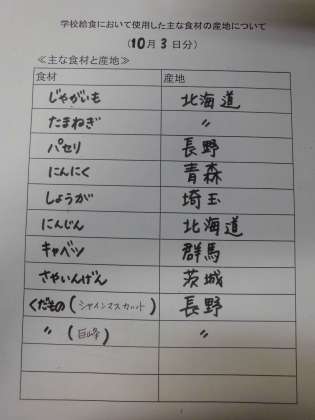 学校給食において使用した主な食材の産地について
(10月3日分)
≪主な食材と産地≫
食材 産地
じゃがいも 北海道
たまねぎ 〃
パセリ 長野
にんにく 青森
しょうが 埼玉
にんじん 北海道
キャベツ 群馬
さやいんげん 茨城
くだもの(シャインマスカット) 長野
〃 (巨峰) 〃